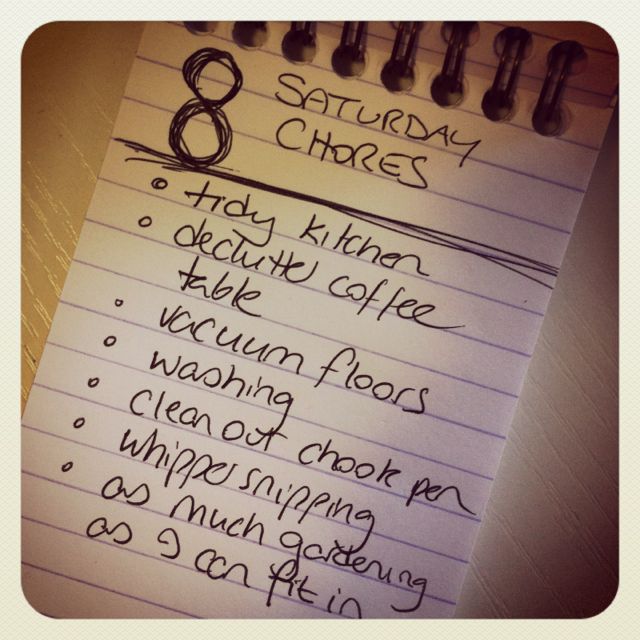 8 SATURDAY
CHORES
• tidy kitchen
• declutter coffee
table
• vacuum floors
• washing
• clean out chook pen
• whippersnipping
• as much gardening
as I can fit in